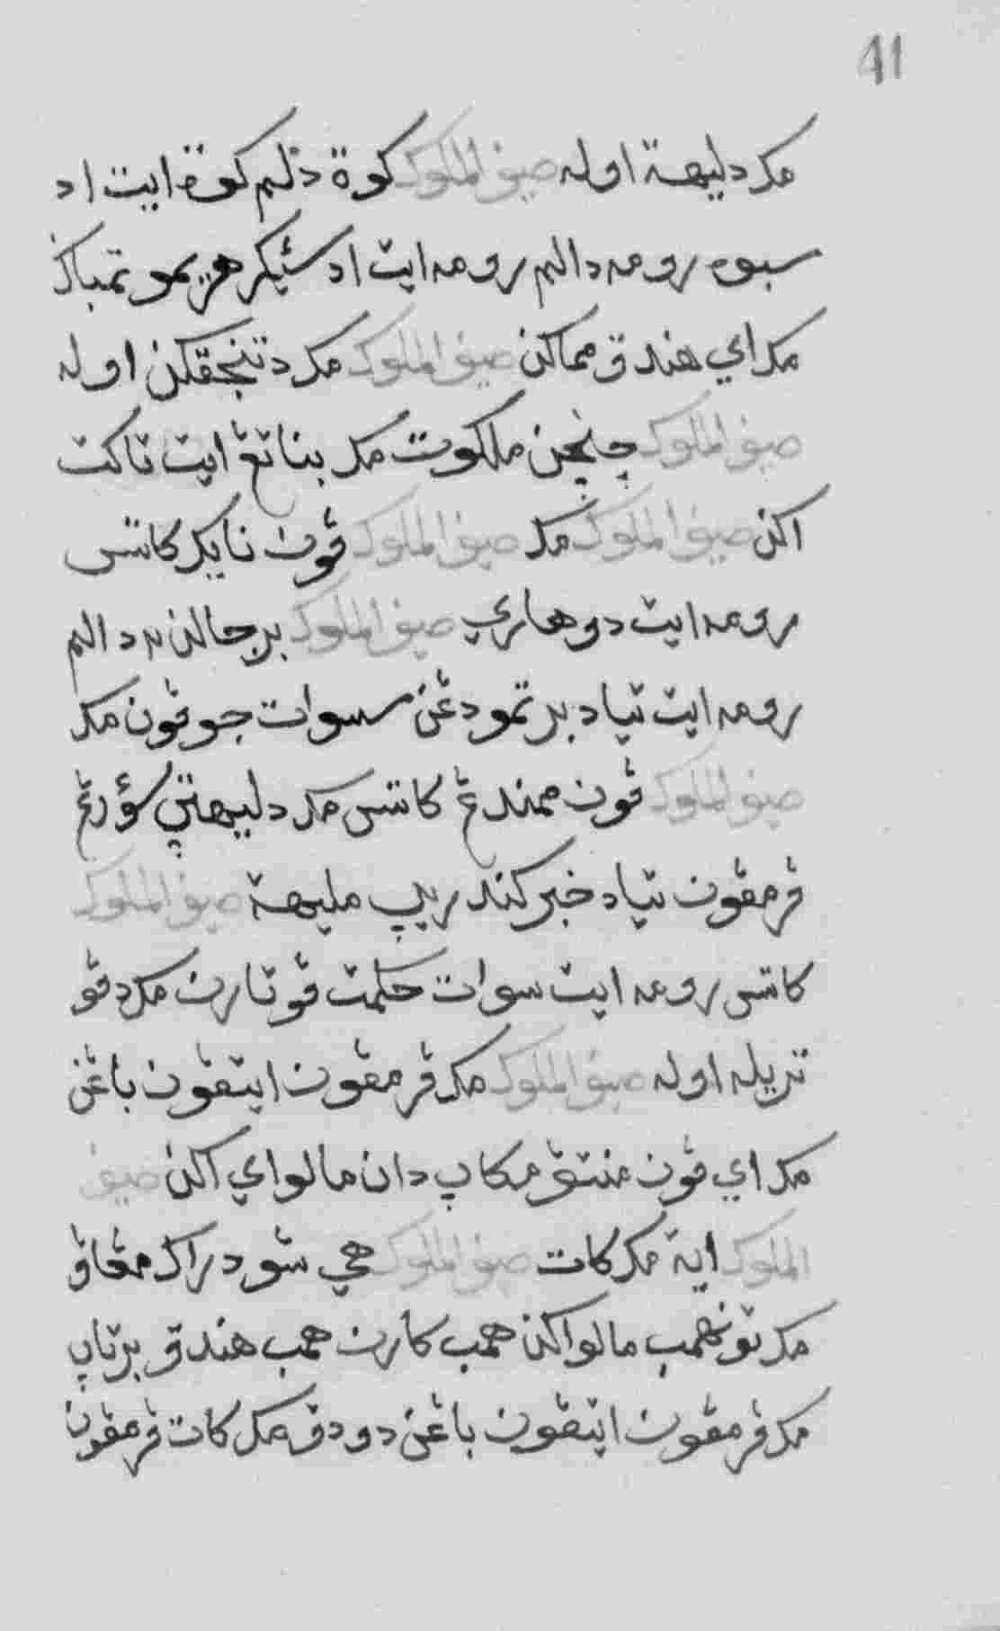 41
مک دليهتڽ اوله صيف الملوک کوت دالم کوت ايت اد
سبوه رومه دالم رومه ايت اد سئيکر هريمو تمباک
مک اي هندق مماکن صيف الملوک مک دتنجقکن اوله
صيف الملوک چنچن ملکوت مک بناتڠ ايت تاکت
اکن صيف الملوک مک صيف الملوک ڤون نايک کاتس
رومه ايت دوهاري صيف الملوک برجالن۲ دالم
رومه ايت تياد برتمو دڠن سسوات جوڤون مک
صيف الملوک ڤون ممندڠ کاتس مک دليهتڽ سؤرڠ
ڤرمڤون تياد خبرکندريڽ مليهت صيف الملوک
کاتس رومه ايت سوات حکمت ڤوتارن مک دڤو
تريله اوله صيف الملوک مک ڤرمڤون ايتڤون باڠن
مک اي ڤون منتڤ مکاڽ دان مالو اي اکن صيف
الملوک اية مک کات صيف الملوک هي سودراک مڠاڤ
مک تونهمب مالو اکن همب کارن همب هندق برتاڽ
مک ڤرمڤون ايتڤون باڠن دودق مک کات ڤرمڤون